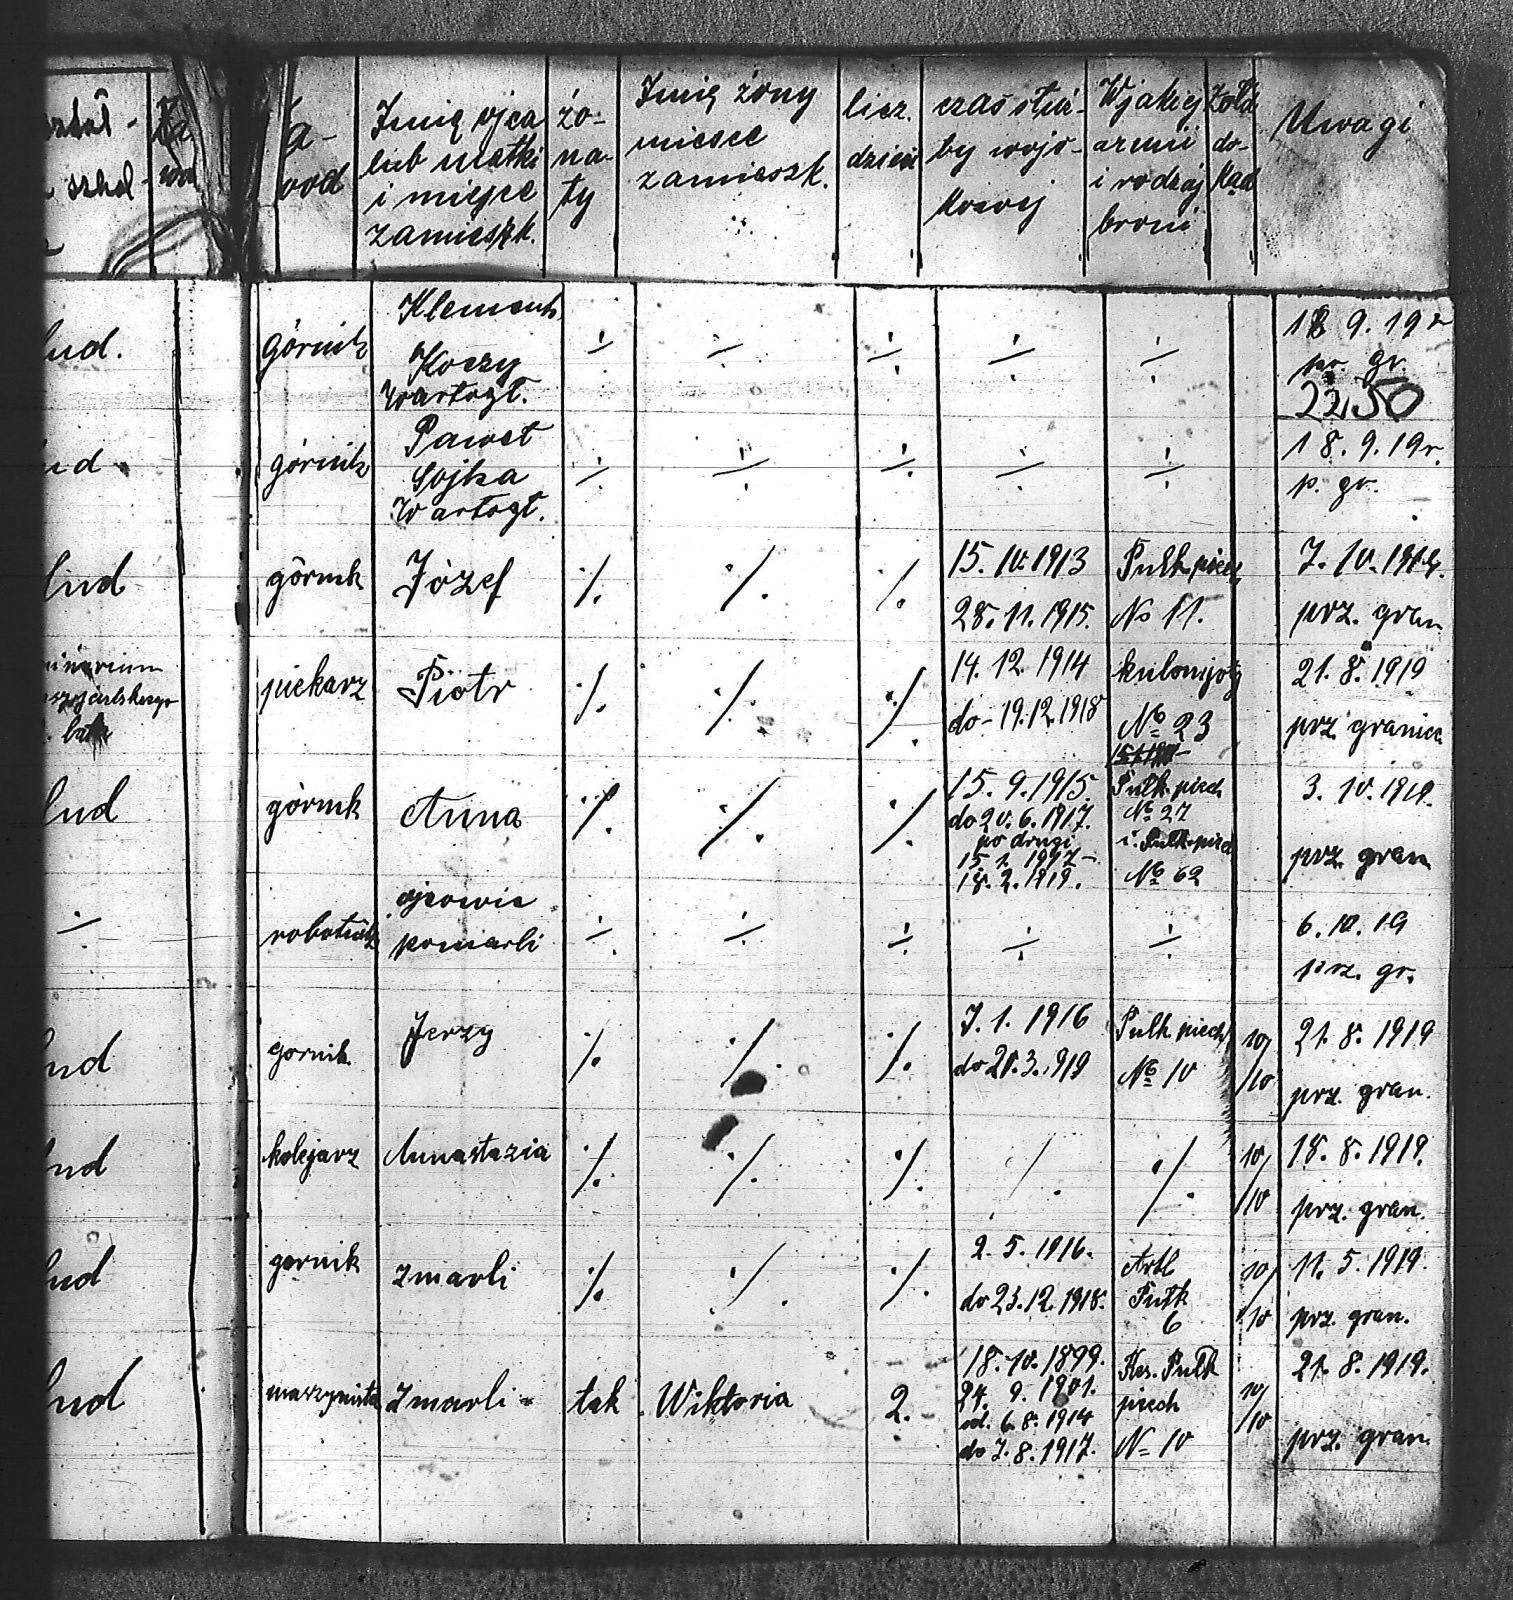 Za-
wod
szkol
wod
Imię ojca
lub matki
i miejsce
zamieszk.
żo-
na-
ty
Imię żony
miesce
zamieszk.
licz.
dzieci
czas służ-
by wojs-
kowej
W jakiej
armii
i rodzaj
broni
Żołd
do-
kąd
Uwagi
lud.
górnik
Klemens
Koczy
Wartogł.
÷ ÷ ÷ ÷ ÷
18 9. 19 r
pr. gr.
22,50
górnik
Paweł
Sojka
Wartogł.
÷ ÷ ÷ ÷ ÷
18. 9. 19 r.
p. gr.
lud
górnik
Józef
·/. ·/. ·/.
15. 10. 1913
28. 11. 1915.
Pułk piech
No 11.
7. 10. 1919.
prz. gran
piekarz
Piotr
·/. ·/. ·/.
14. 12. 1914
do - 19.12.1918
kulomjoty
No 23
21. 8. 1919
prz granicę
lud
górnik
Anna
·/. ·/. ·/.
15. 9. 1915.
do 20. 6. 1917.
po drugi
15. 1. 1917 -
18. 2. 1919.
Pułk piech
No 27
i. Pułk piech
No 62
3. 10. 1919.
prz. gran
÷
robotnik
ojcowie
pomarli
÷ ÷ ÷ ÷ ÷
6. 10. 19
prz. gr.
lud
gornik
Jerzy
·/. ·/. ·/.
7. 1. 1916
do 20. 3. 1919
Pułk piech
No 10
10/
/10
21. 8. 1919
prz. gran.
lud
kolejarz
Annastazia
·/. ·/. ·/. /. ·/.
10/
/10
18. 8. 1919.
prz. gran.
lud
gornik
zmarli
·/. ·/. ·/.
2. 5. 1916.
do 23. 12. 1918.
Artl
Pułk
6
10/
10
11. 5. 1919.
prz. gran.
lud
maszynista
Zmarli -
tak
Wiktoria
2.
18. 10. 1899.
24. 9. 1901.
od. 6. 8. 1914
do 7. 8. 1917.
Res. Pułk
piech
No 10
10/
/10
21. 8. 1919.
prz. gran.